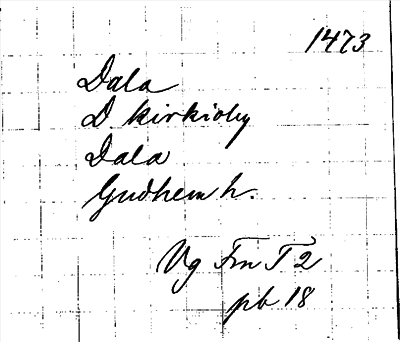 1473
Dala
D. kirkioby
Dala
Gudhem h.
Vg Fm T 2
pb 18